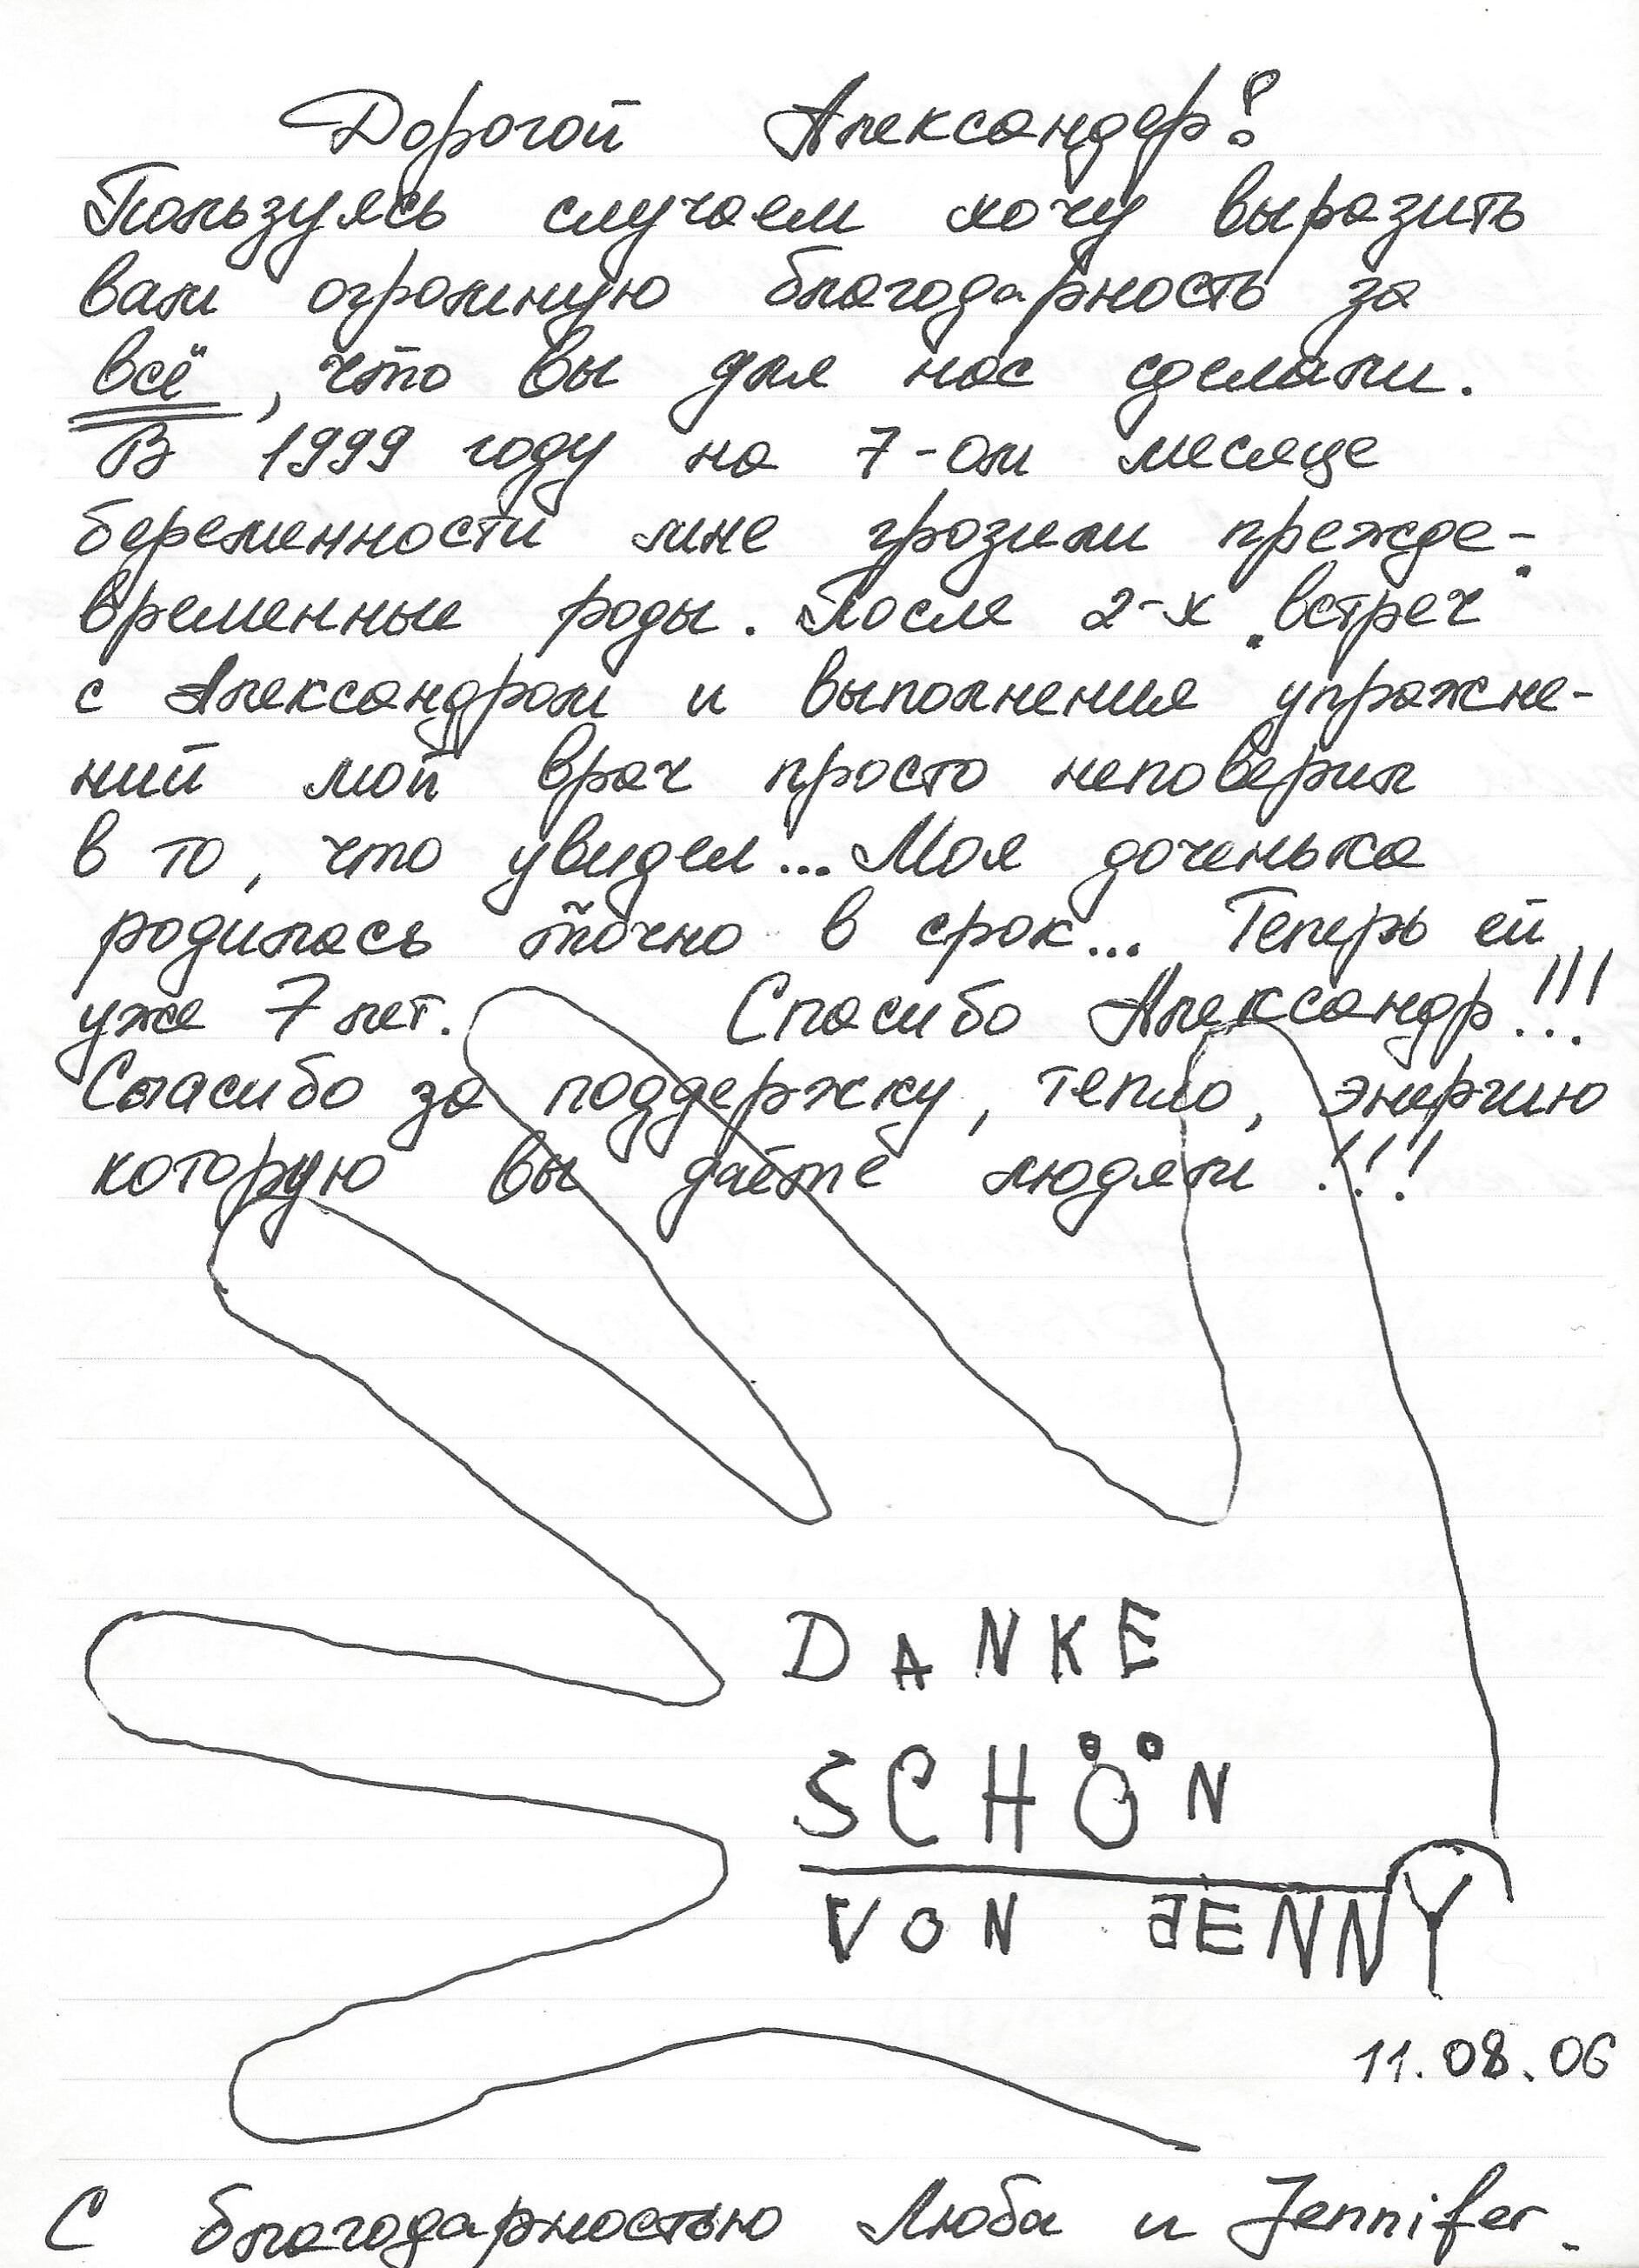 Дорогой Александер!
Пользуясь случаем хочу выразить
вам огромную благодарность за
всё, что вы для нас сделали.
В 1999 году на 7-ом месяце
беременности мне грозили прежде-
временные роды. После 2-х встреч
с Александром и выполнения упражне-
ний мой врач просто неповерил
в то, что увидел... Моя доченька
родилась точно в срок... Теперь ей
уже 7 лет. Спасибо Александр!!!
Спасибо за поддержку, тепло, энергию
которую вы даёте людям!!!
DANKE
SCHÖN
VON JENNY
11.08.06
С благодарностью Люба и Jennifer.